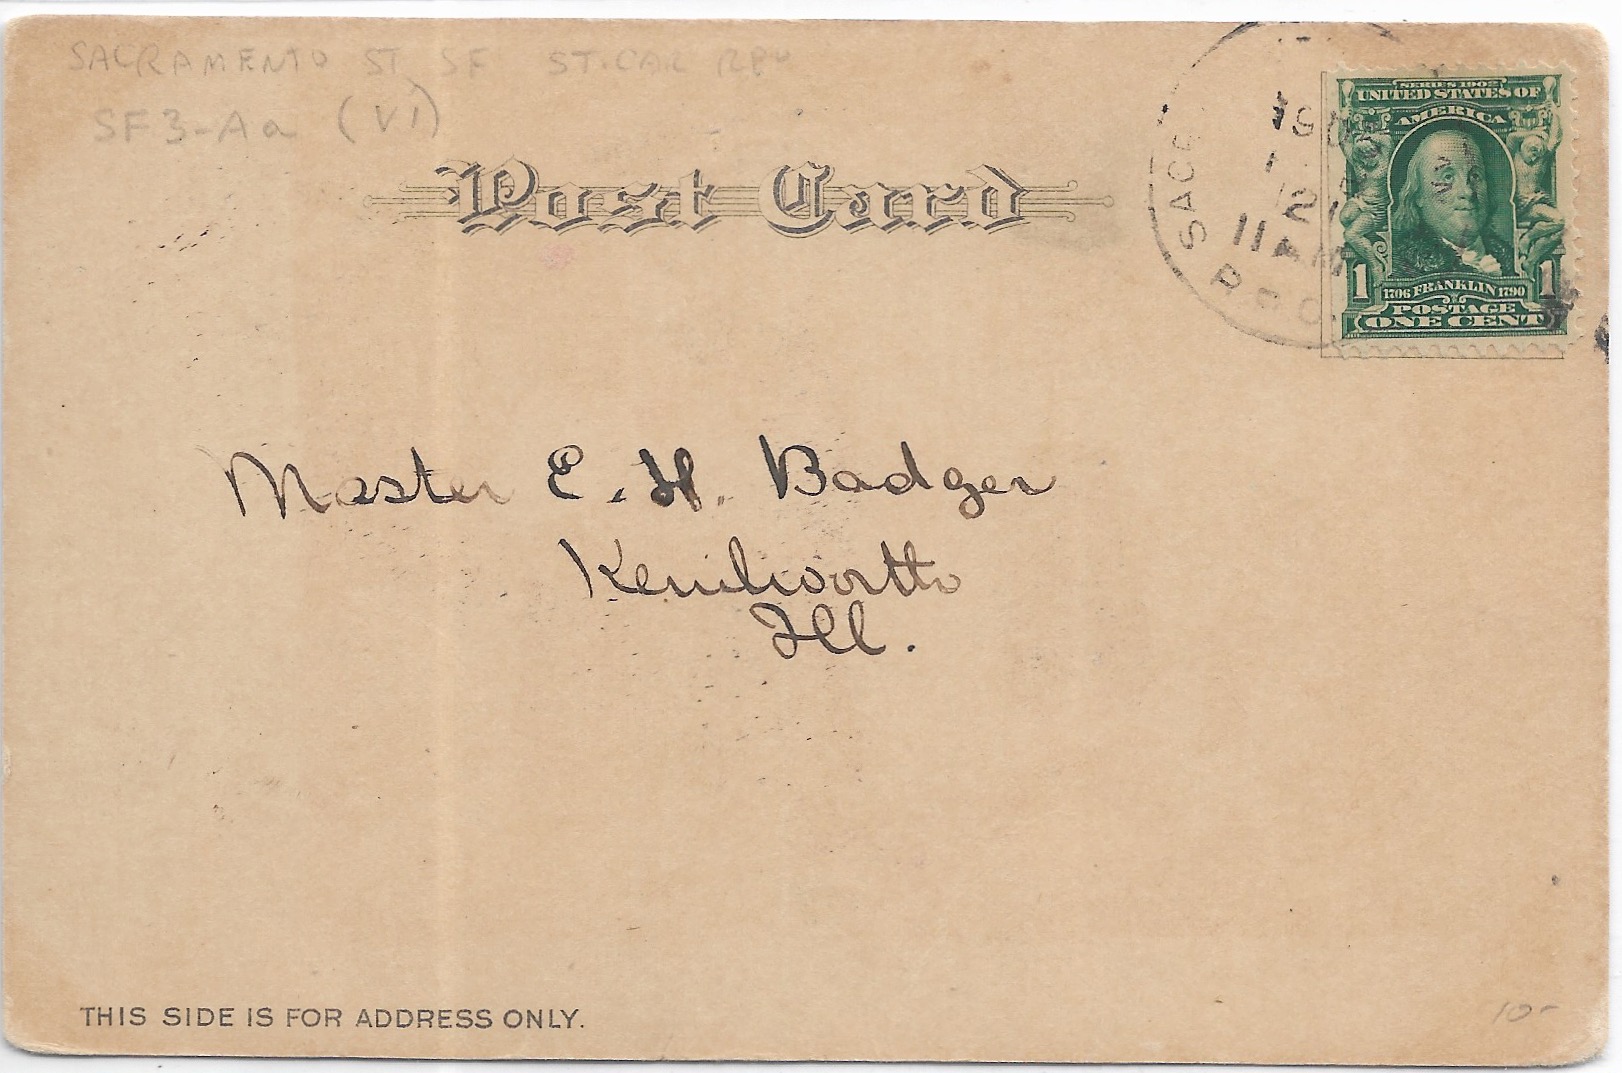 SACRAMENTO ST, SF ST. CAR RPO
SF3-Aa (VI)
Post Card
SACR
12
11 AM
R P O
SERIES 1902
UNITED STATES OF
AMERICA
1 1
1706 FRANKLIN 1790
POSTAGE
ONE CENT
Master E. H. Badger
Kenilworth
Ill.
THIS SIDE IS FOR ADDRESS ONLY.
10-